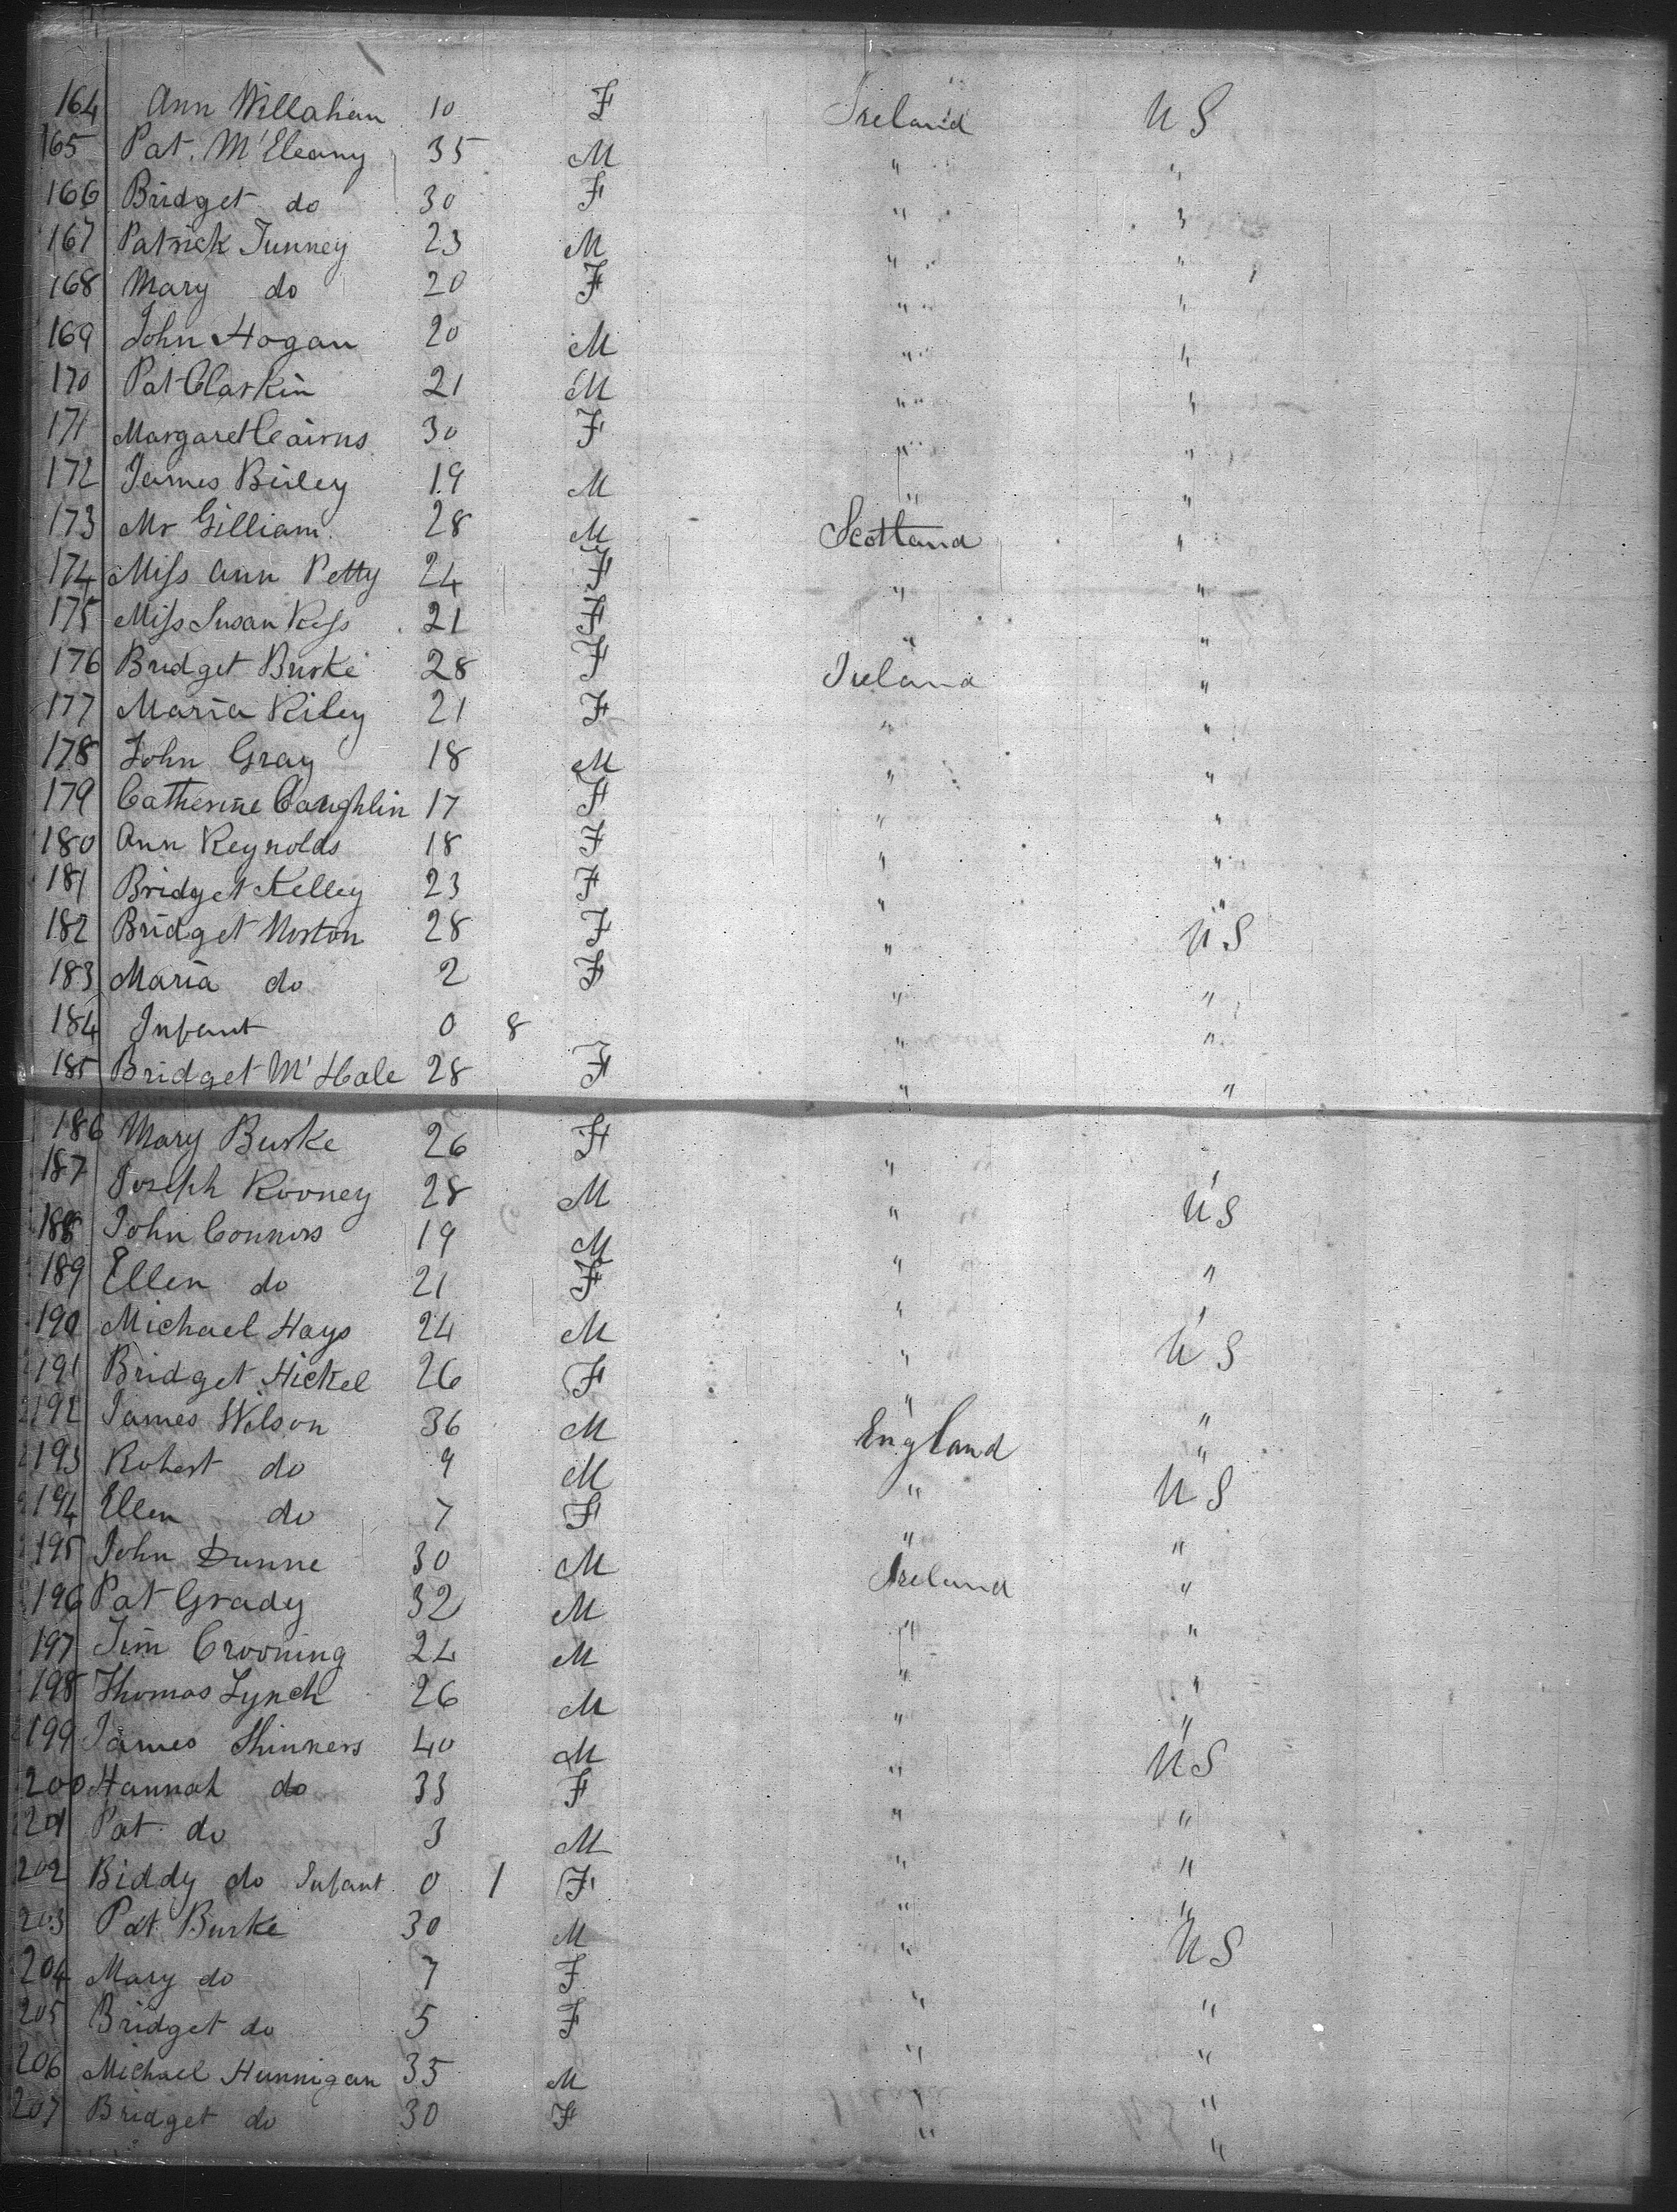 164 Ann Willahan 10 F Ireland U S
165 Pat. M'Eleany 35 M " "
166 Bridget do 30 F " "
167 Patrick Tunney 23 M " "
168 Mary do 20 F " "
169 John Hogan 20 M " "
170 Pat Clarkin 21 M " "
171 Margaret Cairns 30 F " "
172 James Beiley 19 M " "
173 Mr Gilliam 28 M Scotland "
174 Miss Ann Petty 24 F " "
175 Miss Susan Ross 21 F " "
176 Bridget Burke 28 F Ireland "
177 Maria Riley 21 F " "
178 John Gray 18 M " "
179 Catherine Caughlin 17 F " "
180 Ann Reynolds 18 F " "
181 Bridget Kelley 23 F " "
182 Bridget Norton 28 F " U S
183 Maria do 2 F " "
184 Infant 0 8 " "
185 Bridget M'Hale 28 F " "
186 Mary Burke 26 F " "
187 Joseph Rooney 28 M " U S
188 John Connors 19 M " "
189 Ellen do 21 F " "
190 Michael Hays 24 M " U S
191 Bridget Hickel 26 F " "
192 James Wilson 36 M England "
193 Robert do 9 M " U S
194 Ellen do 7 F " "
195 John Dunne 30 M Ireland "
196 Pat Grady 32 M " "
197 Tim Crooning 24 M " "
198 Thomas Lynch 26 M " "
199 James Shinners 40 M " U S
200 Hannah do 33 F " "
201 Pat do 3 M " "
202 Biddy do Infant 0 1 F " "
203 Pat Burke 30 M " U S
204 Mary do 7 F " "
205 Bridget do 5 F " "
206 Michael Hunnigan 35 M " "
207 Bridget do 30 F " "